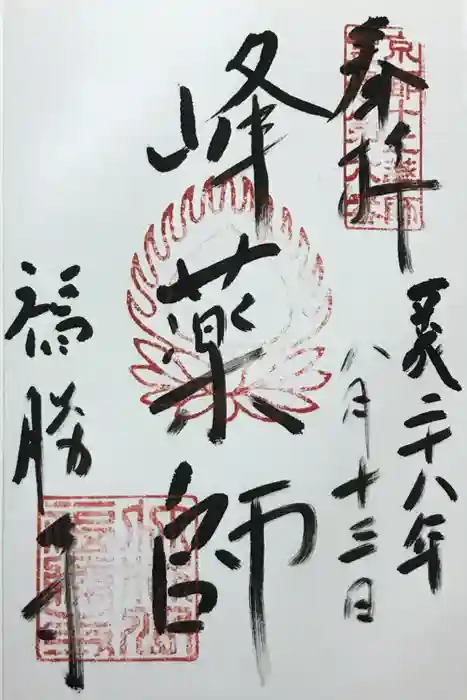 奉拝
京都十二薬師
平成二十八年
八月十三日
峰薬師
福勝寺